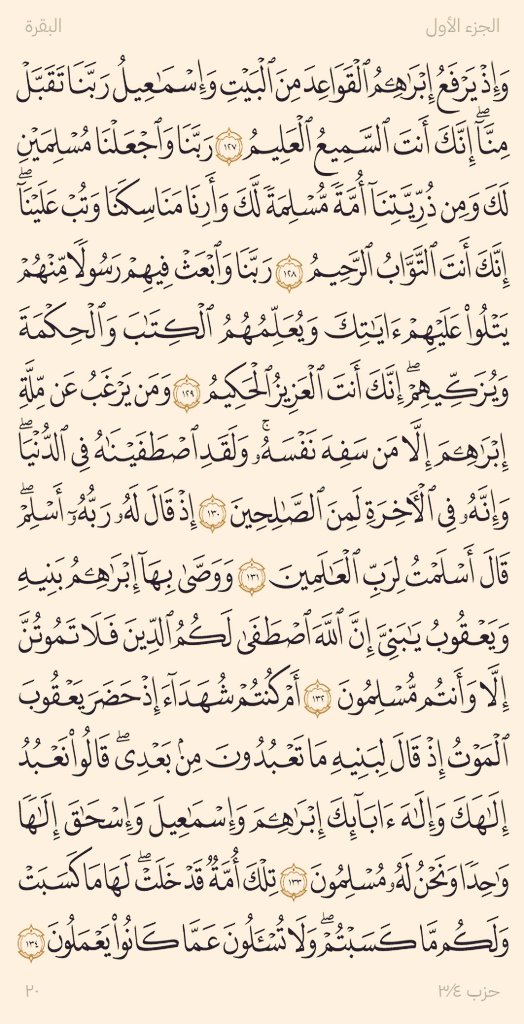 الجزء الأول
البقرة
وَإِذْ يَرْفَعُ إِبْرَٰهِـۧمُ ٱلْقَوَاعِدَ مِنَ ٱلْبَيْتِ وَإِسْمَـٰعِيلُ رَبَّنَا تَقَبَّلْ
مِنَّآ ۖ إِنَّكَ أَنتَ ٱلسَّمِيعُ ٱلْعَلِيمُ ١٢٧ رَبَّنَا وَٱجْعَلْنَا مُسْلِمَيْنِ
لَكَ وَمِن ذُرِّيَّتِنَآ أُمَّةً مُّسْلِمَةً لَّكَ وَأَرِنَا مَنَاسِكَنَا وَتُبْ عَلَيْنَآ ۖ
إِنَّكَ أَنتَ ٱلتَّوَّابُ ٱلرَّحِيمُ ١٢٨ رَبَّنَا وَٱبْعَثْ فِيهِمْ رَسُولًا مِّنْهُمْ
يَتْلُوا۟ عَلَيْهِمْ ءَايَـٰتِكَ وَيُعَلِّمُهُمُ ٱلْكِتَـٰبَ وَٱلْحِكْمَةَ
وَيُزَكِّيهِمْ ۖ إِنَّكَ أَنتَ ٱلْعَزِيزُ ٱلْحَكِيمُ ١٢٩ وَمَن يَرْغَبُ عَن مِّلَّةِ
إِبْرَٰهِـۧمَ إِلَّا مَن سَفِهَ نَفْسَهُۥ ۚ وَلَقَدِ ٱصْطَفَيْنَـٰهُ فِى ٱلدُّنْيَا ۖ
وَإِنَّهُۥ فِى ٱلْـَٔاخِرَةِ لَمِنَ ٱلصَّـٰلِحِينَ ١٣٠ إِذْ قَالَ لَهُۥ رَبُّهُۥٓ أَسْلِمْ ۖ
قَالَ أَسْلَمْتُ لِرَبِّ ٱلْعَـٰلَمِينَ ١٣١ وَوَصَّىٰ بِهَآ إِبْرَٰهِـۧمُ بَنِيهِ
وَيَعْقُوبُ يَـٰبَنِىَّ إِنَّ ٱللَّهَ ٱصْطَفَىٰ لَكُمُ ٱلدِّينَ فَلَا تَمُوتُنَّ
إِلَّا وَأَنتُم مُّسْلِمُونَ ١٣٢ أَمْ كُنتُمْ شُهَدَآءَ إِذْ حَضَرَ يَعْقُوبَ
ٱلْمَوْتُ إِذْ قَالَ لِبَنِيهِ مَا تَعْبُدُونَ مِنۢ بَعْدِى ۖ قَالُوا۟ نَعْبُدُ
إِلَـٰهَكَ وَإِلَـٰهَ ءَابَآئِكَ إِبْرَٰهِـۧمَ وَإِسْمَـٰعِيلَ وَإِسْحَـٰقَ إِلَـٰهًا
وَٰحِدًا وَنَحْنُ لَهُۥ مُسْلِمُونَ ١٣٣ تِلْكَ أُمَّةٌ قَدْ خَلَتْ ۖ لَهَا مَا كَسَبَتْ
وَلَكُم مَّا كَسَبْتُمْ ۖ وَلَا تُسْـَٔلُونَ عَمَّا كَانُوا۟ يَعْمَلُونَ ١٣٤
حزب ٣/٤
٢٠